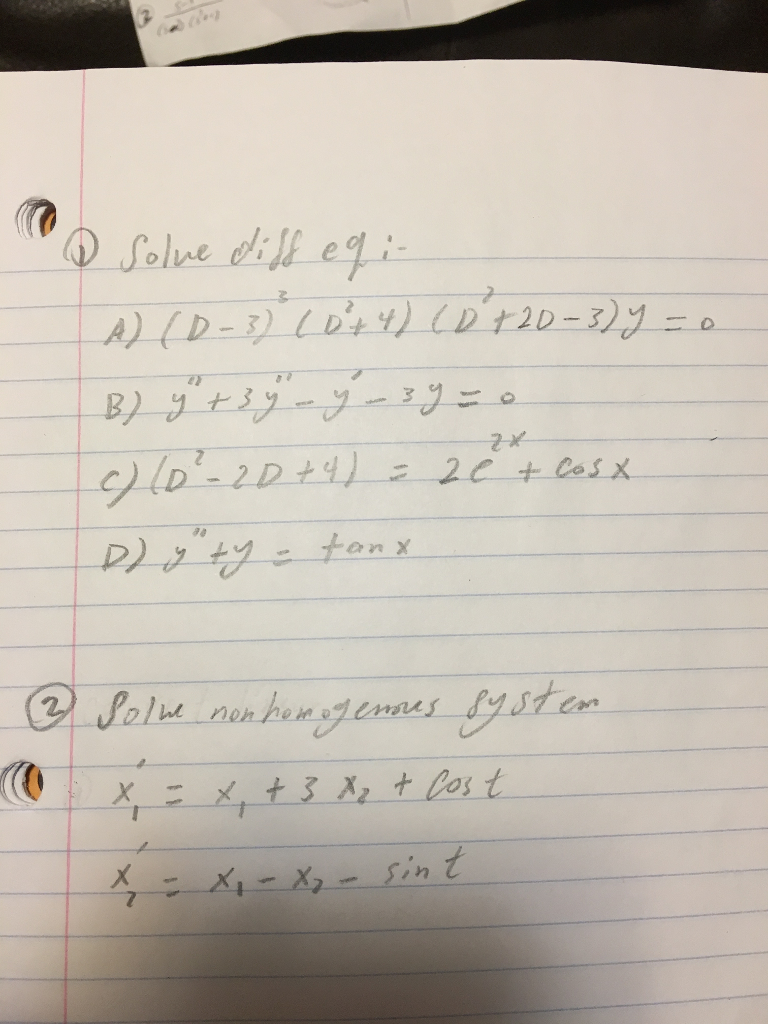 ① Solve diff eq :-
A) (D-3)³ (D²+4) (D²+2D-3)y = 0
B) y'''+3y''-y'-3y = 0
C) (D²-2D+4) = 2e²ˣ + cosx
D) y''+y = tanx
② Solve nonhomogenous system
x₁' = x₁ + 3x₂ + Cost
x₂' = x₁ - x₂ - sint